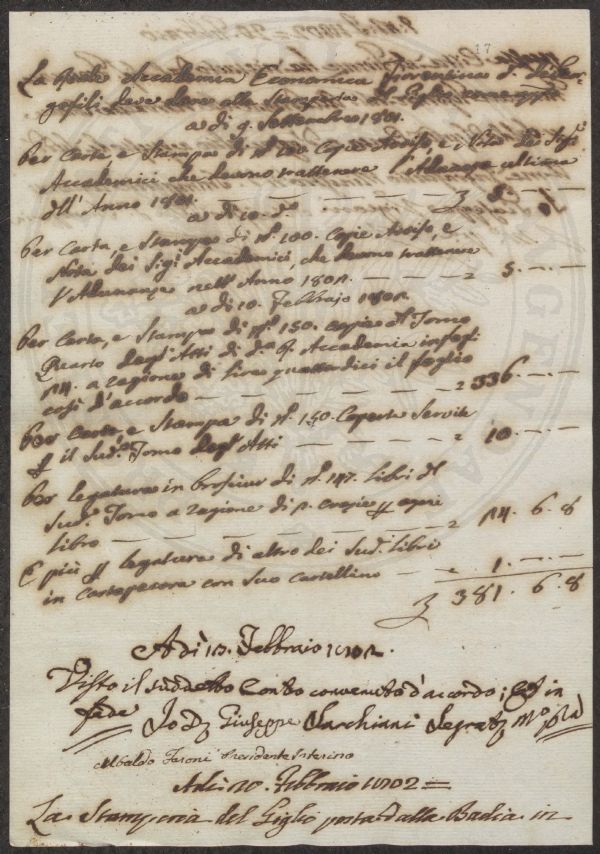 17
La Reale Accademia Economica Fiorentina d. de Geor-
gofili deve dare alla Stamperia del Giglio come appº
a dì 9. Settembre 1801.
Per Carta, e Stampa di Nº 200 Copie Avviso, e Nota dei Sigi
Accademici che devono trattenere l'Adunanze ultima
dell'Anno 1801. 3 8. —. —
a dì 10. dº
Per Carta, e Stampa di Nº 100. Copie Avviso, e
Nota dei Sigi Accademici, che devono trattenere
l'Adunanze nell'Anno 1802. — — — 2 5. —. —
a dì 10. Febbrajo 1802.
Per Carta, e Stampa di Nº 150. copie del Tomo
Quarto degl'Atti di dª R. Accademia in fogli
24. a ragione di Lire quattordici il foglio
così d'accordo — — — 2 336. —. —
Per Carta e Stampa di Nº 150. Coperte servite
p il sudº Tomo degl'Atti — — — 2 10. —. —
Per legatura in brosciur di Nº 147. libri del
sudº Tomo a ragione di 2. crazie p ogni
libro — — — 2 24. 6. 8
E più p legatura di altro dei sudi libri
in cartapecora con suo cartellino — — 2 1. —. —
3 381. 6. 8
Adì 13. Febbraio 1802.
Visto il suddetto Conto convenuto d'accordo; ed in
fede Io Dr Giuseppe Sarchiani Segretº
Ubaldo Feroni Presidente Interino
Adì 20. Febbraio 1802 =
La Stamperia del Giglio posta dalla Badia in